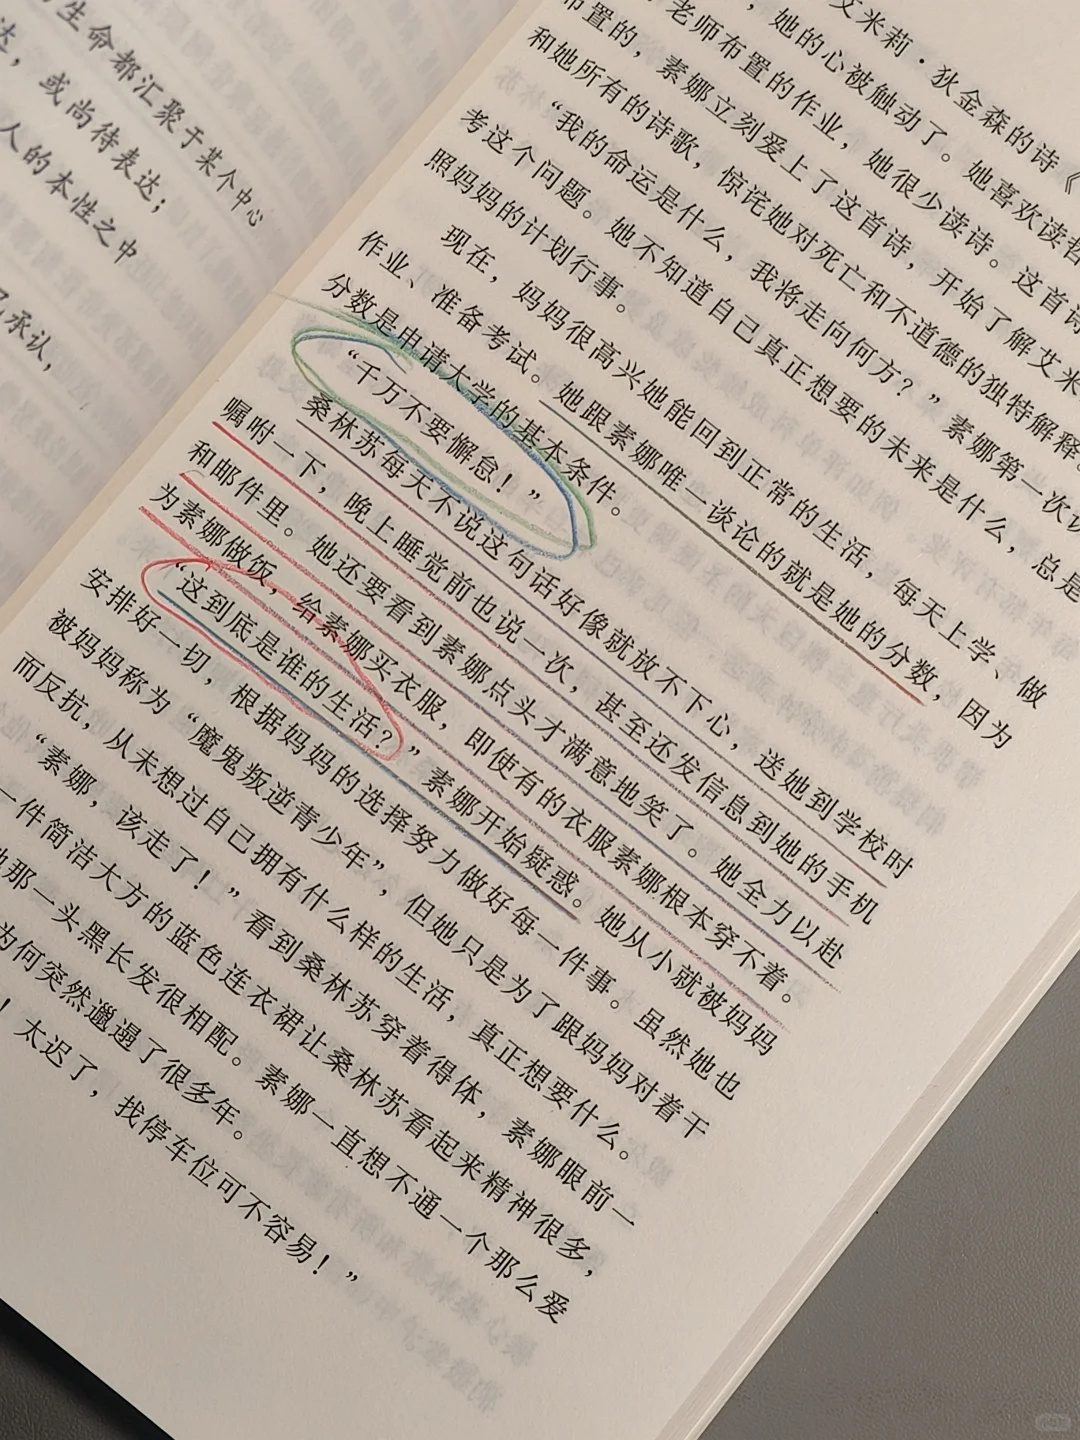 生命都汇聚于某个中心
达，或尚待表达；
人的本性之中
承认，
艾米莉·狄金森的诗《
，她的心被触动了。她喜欢读哲
老师布置的作业，她很少读诗。这首诗
布置的，素娜立刻爱上了这首诗，开始了解艾米
和她所有的诗歌，惊诧她对死亡和不道德的独特解释。
“我的命运是什么，我将走向何方？”素娜第一次认
考这个问题。她不知道自己真正想要的未来是什么，总是
照妈妈的计划行事。
现在，妈妈很高兴她能回到正常的生活，每天上学、做
作业、准备考试。她跟素娜唯一谈论的就是她的分数，因为
分数是申请大学的基本条件。
“千万不要懈怠！”
桑林苏每天不说这句话好像就放不下心，送她到学校时
嘱咐一下，晚上睡觉前也说一次，甚至还发信息到她的手机
和邮件里。她还要看到素娜点头才满意地笑了。她全力以赴
为素娜做饭，给素娜买衣服，即使有的衣服素娜根本穿不着。
“这到底是谁的生活？”素娜开始疑惑。她从小就被妈妈
安排好一切，根据妈妈的选择努力做好每一件事。虽然她也
被妈妈称为“魔鬼叛逆青少年”，但她只是为了跟妈妈对着干
而反抗，从未想过自己拥有什么样的生活，真正想要什么。
“素娜，该走了！”看到桑林苏穿着得体，素娜眼前一
一件简洁大方的蓝色连衣裙让桑林苏看起来精神很多，
那一头黑长发很相配。素娜一直想不通一个那么爱
为何突然邋遢了很多年。
！太迟了，找停车位可不容易！”